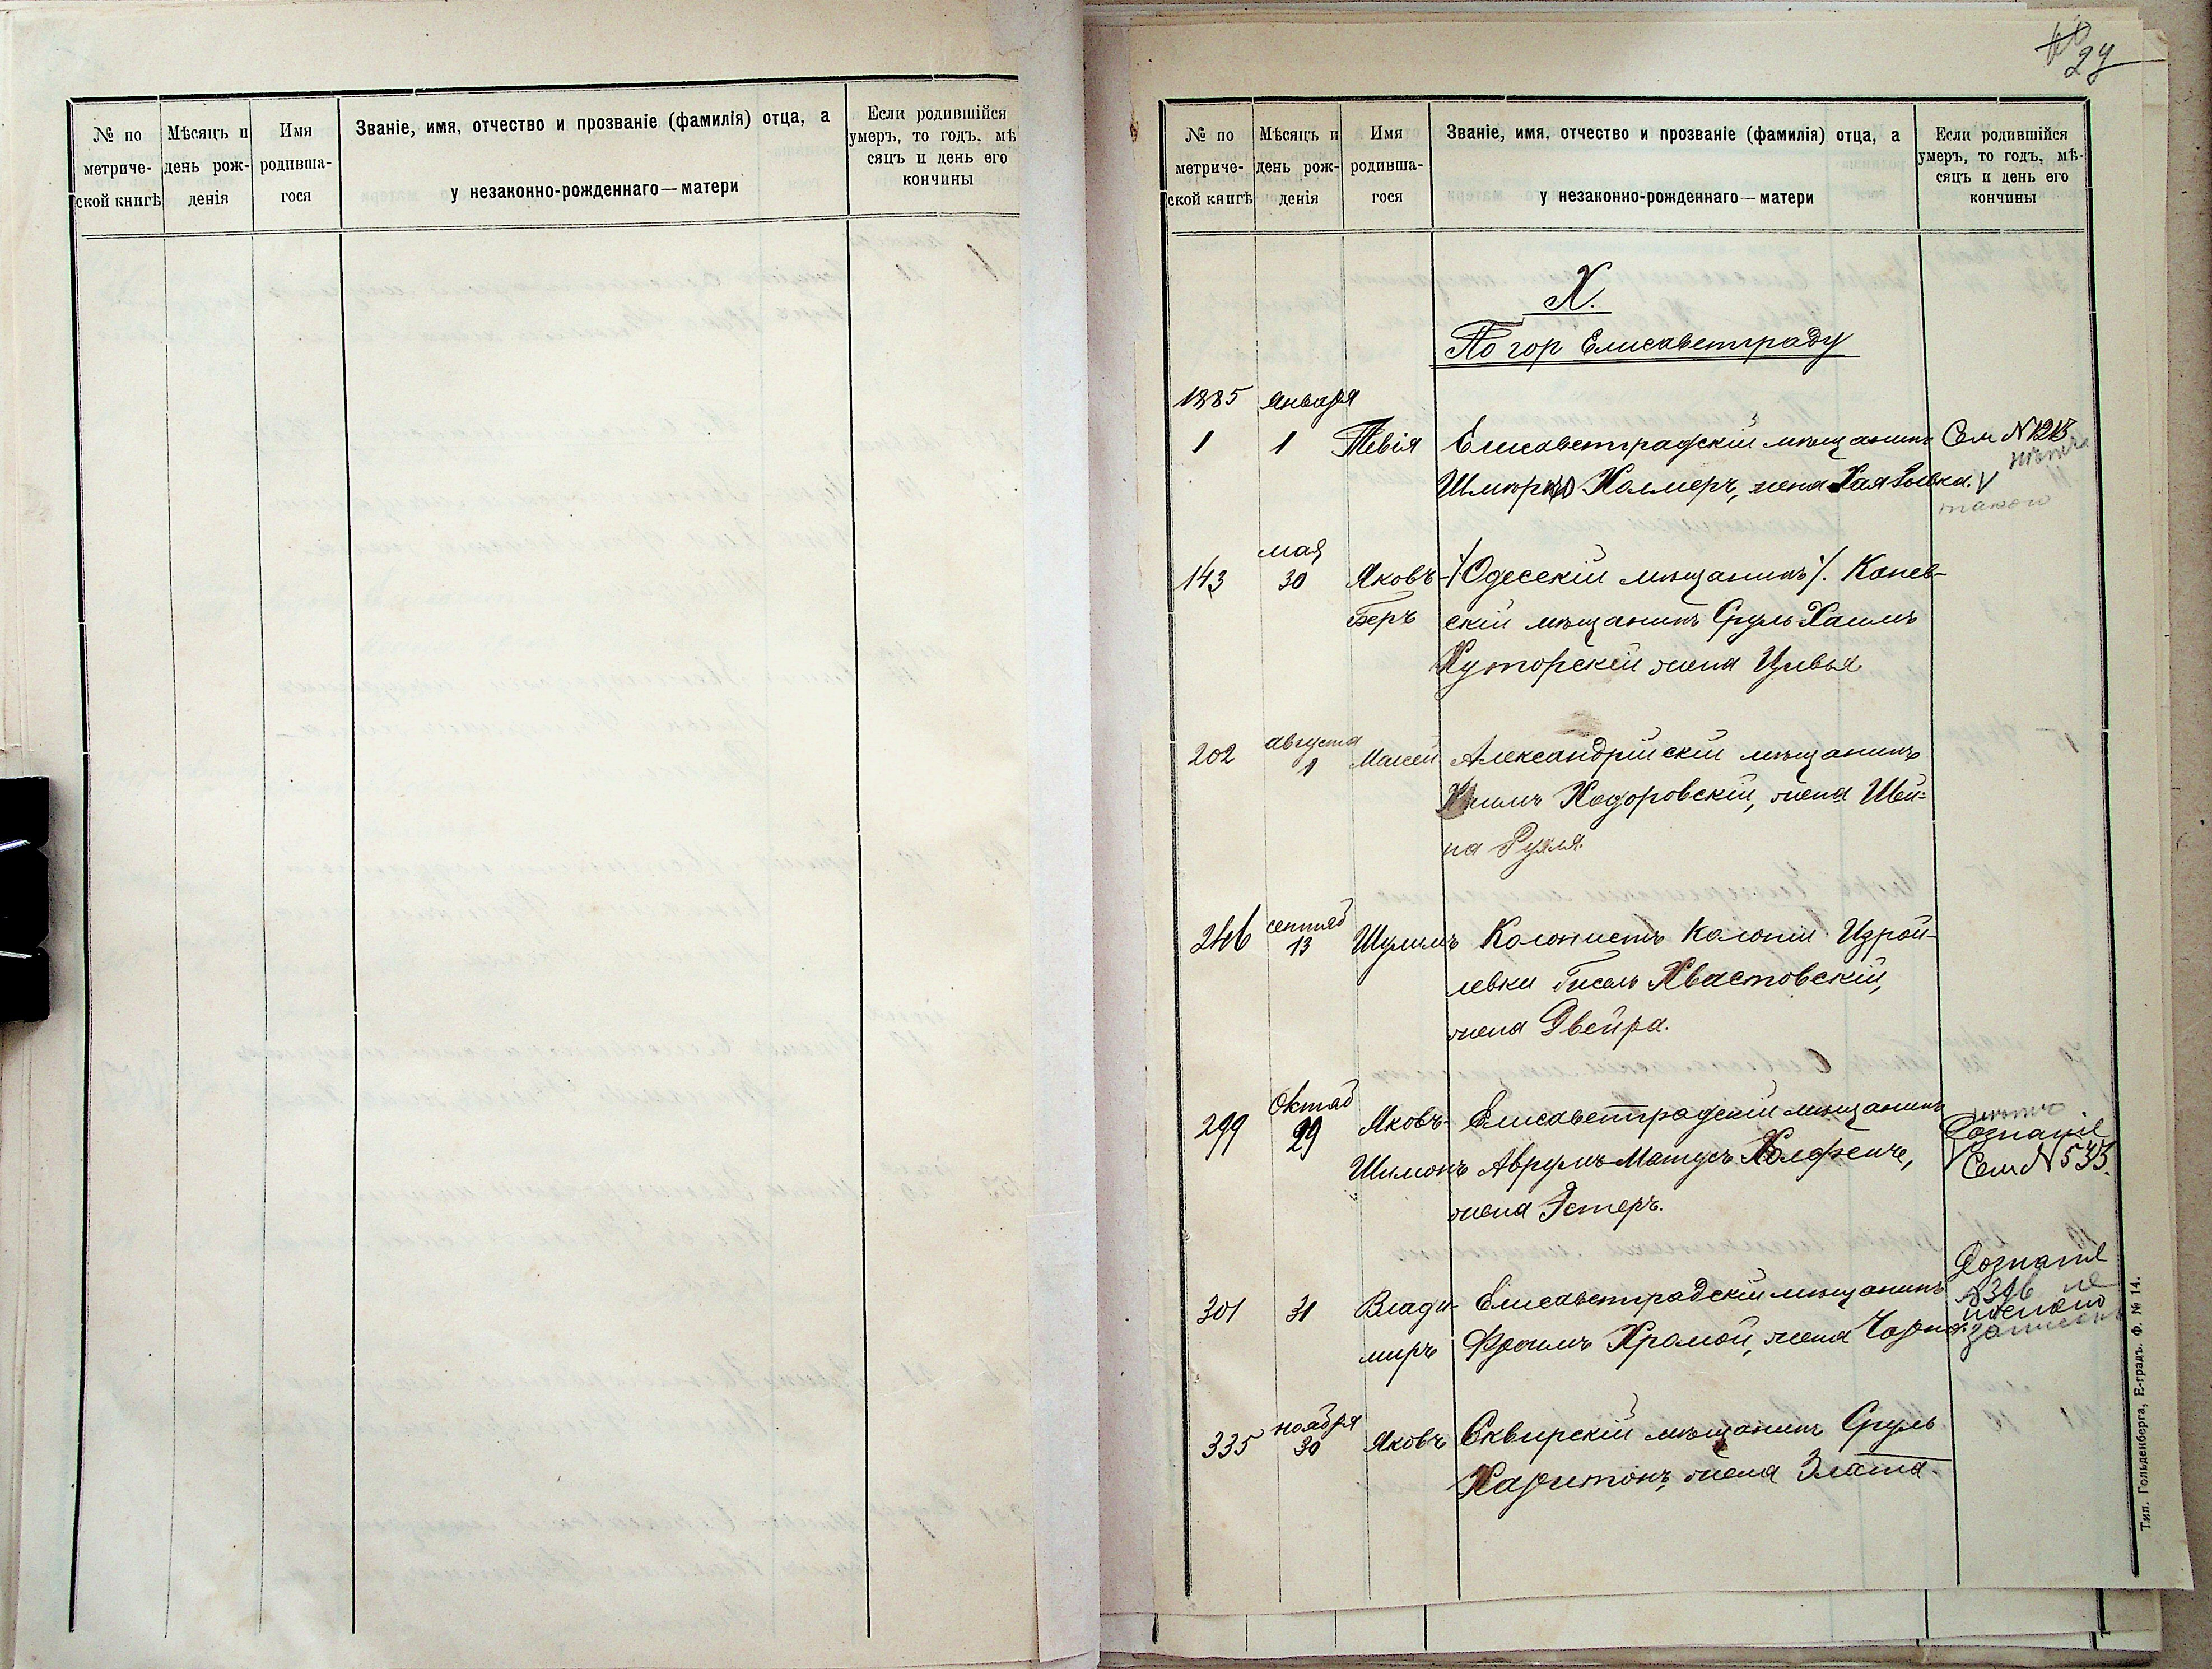 № по метриче-ской книгѣ
Мѣсяцъ и день рож-денія
Имя родивша-гося
Званіе, имя, отчество и прозваніе (фамилія) отца, а у незаконно-рожденнаго—матери
Если родившійся умеръ, то годъ, мѣ сяцъ и день его кончины
29
№ по метриче-ской книгѣ
Мѣсяцъ и день рож-денія
Имя родивша-гося
Званіе, имя, отчество и прозваніе (фамилія) отца, а у незаконно-рожденнаго—матери
Если родившійся умеръ, то годъ, мѣ-сяцъ и день его кончины
Х.
По гор Елисаветграду
1885 января
1 1 Тевія Елисаветградскій мѣщанинъ Сем N 1213
Холмеръ, жена Хая Рывка. V
такого
мая
143 30 Яковъ- ·/. Одесскій мѣщанинъ ·/. Канев-
Беръ скій мѣщанинъ Сруль Хаимъ
Хуторскій жена Цивья
августа
202 1 Моисей Александрійскій мѣщанинъ
Хаимъ Ходоровскій, жена Шей-
на Рухля.
сентяб
246 13 Шулимъ Колонистъ колоніи Израи-
левки Гисель Хвастовскій,
жена Двейра.
Октяб
299 29 Яковъ- Елисаветградскій мѣщанинъ
Дознаніе
Шимонъ Аврумъ-Матусъ , V Сем N 533.
жена Эстеръ.
Дознаніе
301 31 Влади- Елисаветградскій мѣщанинъ
миръ Фроимъ Хромой, жена Чарна.
ноября
335 30 Яковъ Сквирскій мѣщанинъ Сруль
Харитонъ, жена Злата.
Тип. Гольденберга, Е-градъ. Ф. № 14.